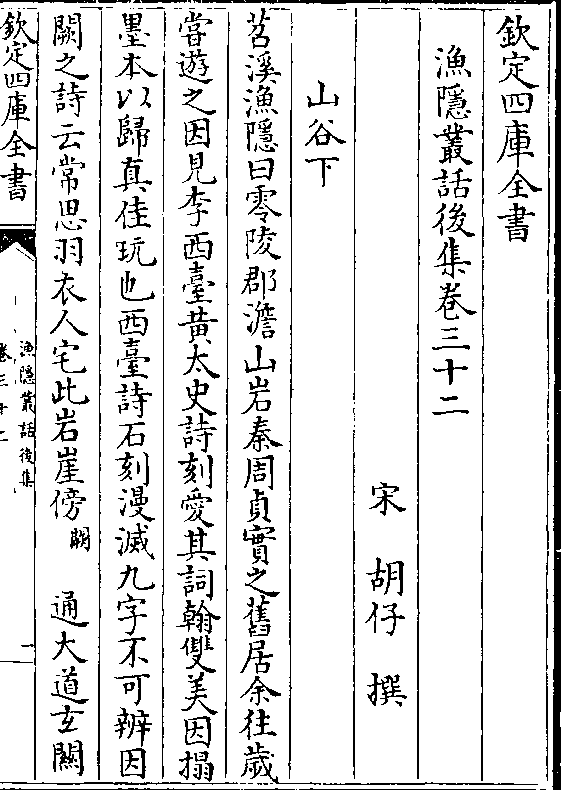 欽定四庫全書
漁隱叢話後集卷三十二
宋 胡仔 撰
山谷下
苕溪漁隱曰零陵郡澹山岩秦周貞實之舊居余往歲
嘗遊之因見李西臺黄太史詩刻愛其詞翰雙美因搨
墨本以歸真佳玩也西臺詩石刻漫滅九字不可辨因
闕之詩云常思羽衣人宅此岩崖傍闕 通大道玄關
欽定四庫全書
漁隱叢話後集
卷三十二
一